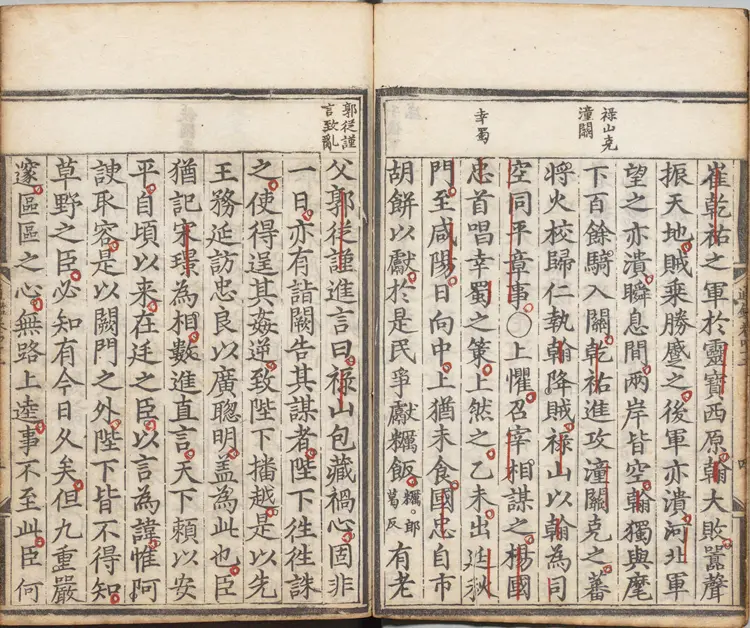 祿山克
潼關
幸蜀
崔乾祐之軍於靈寶西原翰大敗囂聲
振天地賊乘勝蹙之後軍亦潰河北軍
望之亦潰瞬息間兩岸皆空翰獨與麾
下百餘騎入關乾祐進攻潼關克之蕃
將火校歸仁執翰降賊祿山以翰為司
空同平章事〇上懼召宰相謀之楊國
忠首唱幸蜀之策上然之乙未出延秋
門至咸陽日向中上猶未食國忠自市
胡餅以獻於是民爭獻糲飯糲。郎葛反有老
郭從謹
言致亂
父郭從謹進言曰祿山包藏禍心固非
一日亦有詣闕告其謀者陛下往往誅
之使得逞其姦逆致陛下播越是以先
王務延訪忠良以廣聰明盖為此也臣
猶記宋璟為相數進直言天下頼以安
平自頃以来在廷之臣以言為諱惟阿
諛取容是以闕門之外陛下皆不得知
草野之臣必知有今日久矣但九重嚴
邃區區之心無路上達事不至此臣何